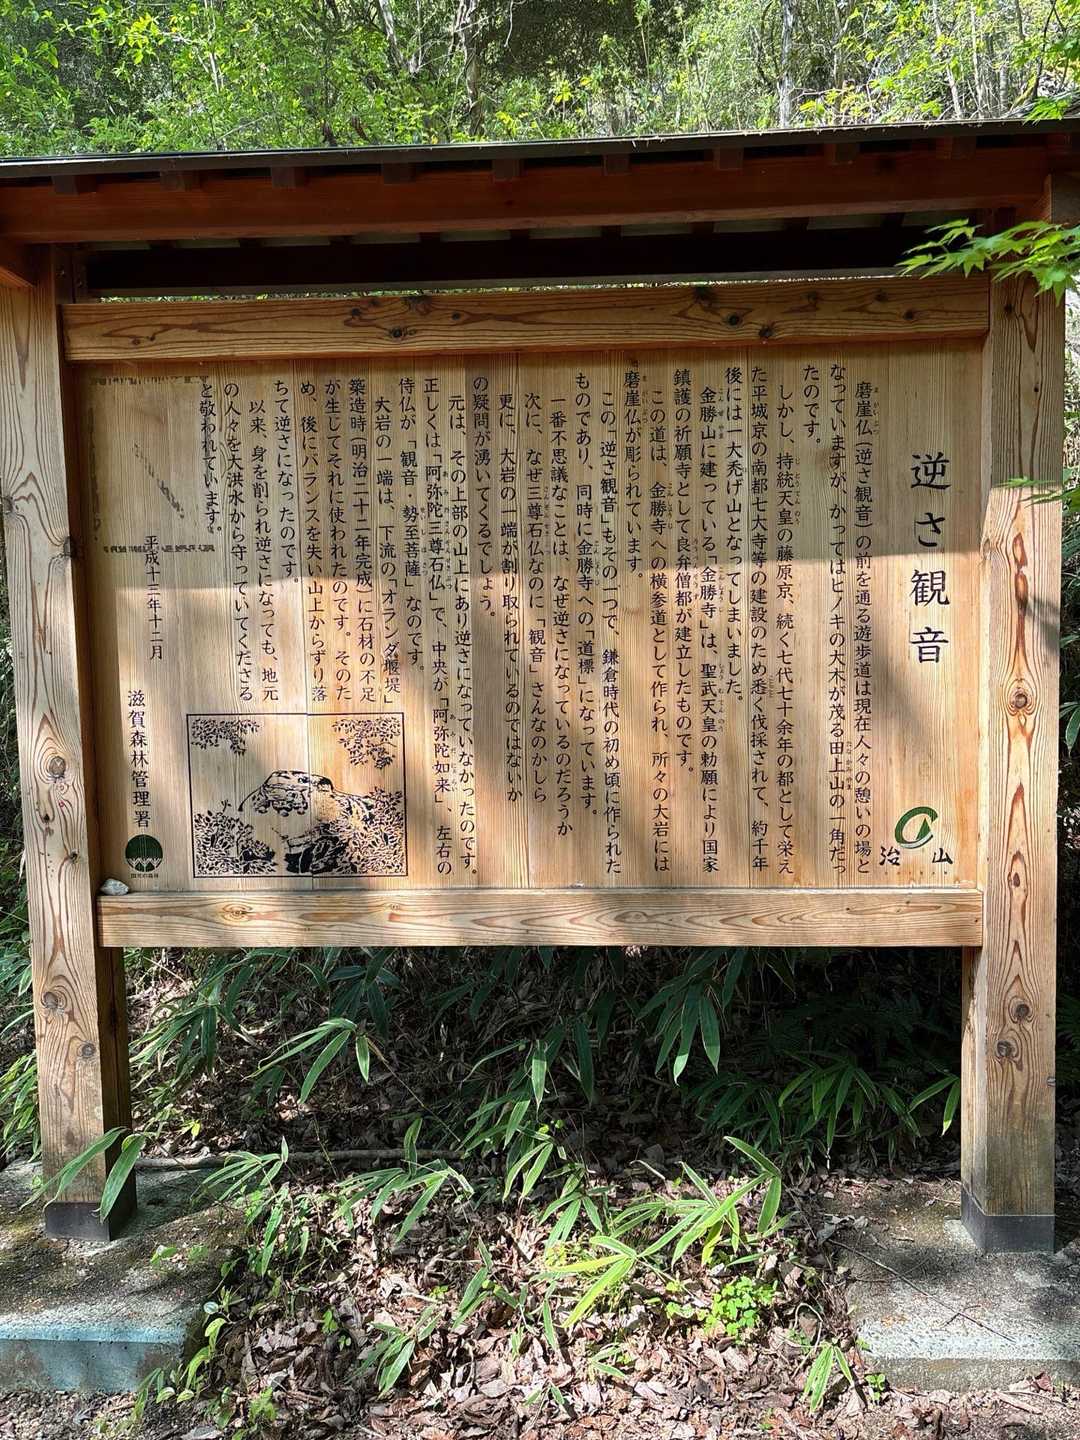 逆さ観音
治山
磨崖仏（逆さ観音）の前を通る遊歩道は現在人々の憩いの場と
なっていますが、かつてはヒノキの大木が茂る田上山の一角だっ
たのです。
しかし、持統天皇の藤原京、続く七代七十余年の都として栄え
た平城京の南都七大寺等の建設のため悉く伐採されて、約千年
後には一大禿げ山となってしまいました。
金勝山に建っている「金勝寺」は、聖武天皇の勅願により国家
鎮護の祈願寺として良弁僧都が建立したものです。
この道は、金勝寺への横参道として作られ、所々の大岩には
磨崖仏が彫られています。
この「逆さ観音」もその一つで、鎌倉時代の初め頃に作られた
ものであり、同時に金勝寺への「道標」になっています。
一番不思議なことは、なぜ逆さになっているのだろうか
次に、なぜ三尊石仏なのに「観音」さんなのかしら
更に、大岩の一端が割り取られているのではないか
の疑問が湧いてくるでしょう。
元は、その上部の山上にあり逆さになっていなかったのです。
正しくは「阿弥陀三尊石仏」で、中央が「阿弥陀如来」、左右の
侍仏が「観音・勢至菩薩」なのです。
大岩の一端は、下流の「オランダ堰堤」
築造時（明治二十二年完成）に石材の不足
が生じてそれに使われたのです。そのた
め、後にバランスを失い山上からずり落
ちて逆さになったのです。
以来、身を削られ逆さになっても、地元
の人々を大洪水から守っていてくださる
と敬われています。
平成十三年十二月
滋賀森林管理署